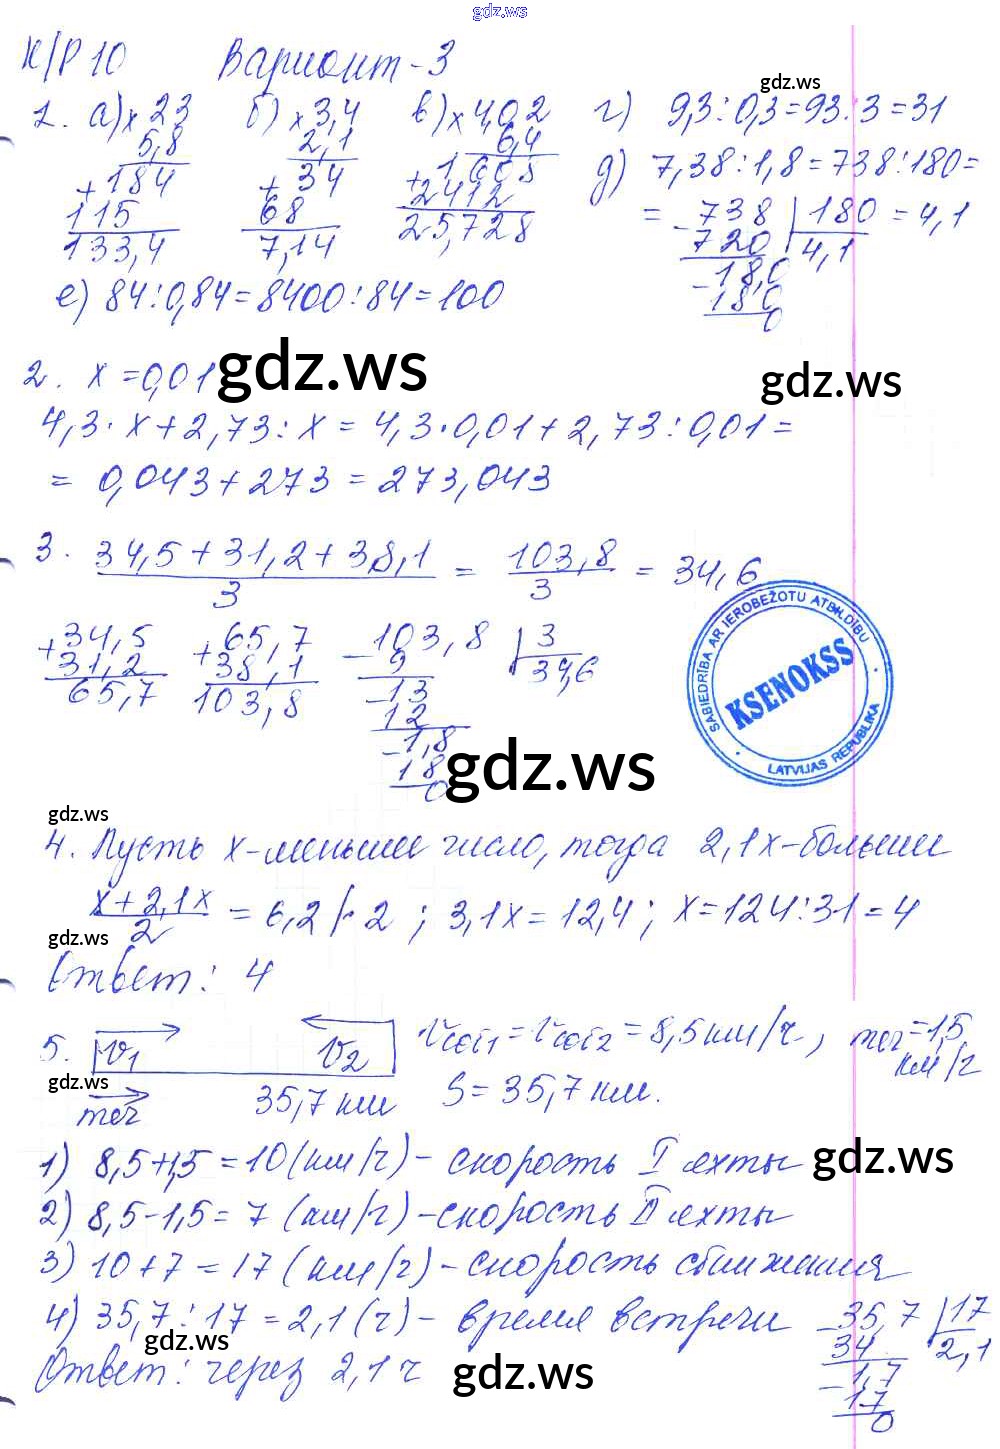 gdz.ws
К/Р 10 Вариант-3
gdz.ws
1. а) × 23 б) × 3,4 в) × 4,02 г) 9,3 : 0,3 = 93 : 3 = 31
5,8 2,1 6,4
+ 184 + 34 + 1608 д) 7,38 : 1,8 = 738 : 180 =
115 68 2412 = - 738 | 180 = 4,1
133,4 7,14 25,728 720 4,1
- 18,0
18,0
0
е) 84 : 0,84 = 8400 : 84 = 100
gdz.ws
gdz.ws
2. x = 0,01
4,3 · x + 2,73 : x = 4,3 · 0,01 + 2,73 : 0,01 =
= 0,043 + 273 = 273,043
3. 34,5 + 31,2 + 38,1 / 3 = 103,8 / 3 = 34,6
+ 34,5 + 65,7 - 103,8 | 3
31,2 38,1 9 34,6
65,7 103,8 - 13
12
- 1,8
18
0
SABIEDRĪBA AR IEROBEŽOTU ATBILDĪBU
KSENOKSS
LATVIJAS REPUBLIKA
gdz.ws
gdz.ws
4. Пусть x-меньшее число, тогда 2,1x-большее
x + 2,1x / 2 = 6,2 |· 2 ; 3,1x = 12,4 ; x = 124 : 31 = 4
gdz.ws
Ответ: 4
5. V1 V2 Vсоб1 = Vсоб2 = 8,5 км/ч, теч = 1,5 км/ч
gdz.ws
теч 35,7 км S = 35,7 км.
1) 8,5 + 1,5 = 10 (км/ч) - скорость I яхты
gdz.ws
2) 8,5 - 1,5 = 7 (км/ч) - скорость II яхты
3) 10 + 7 = 17 (км/ч) - скорость сближения
4) 35,7 : 17 = 2,1 (ч) - время встречи - 35,7 | 17
gdz.ws
34 2,1
Ответ: через 2,1 ч
gdz.ws
- 1,7
17
0